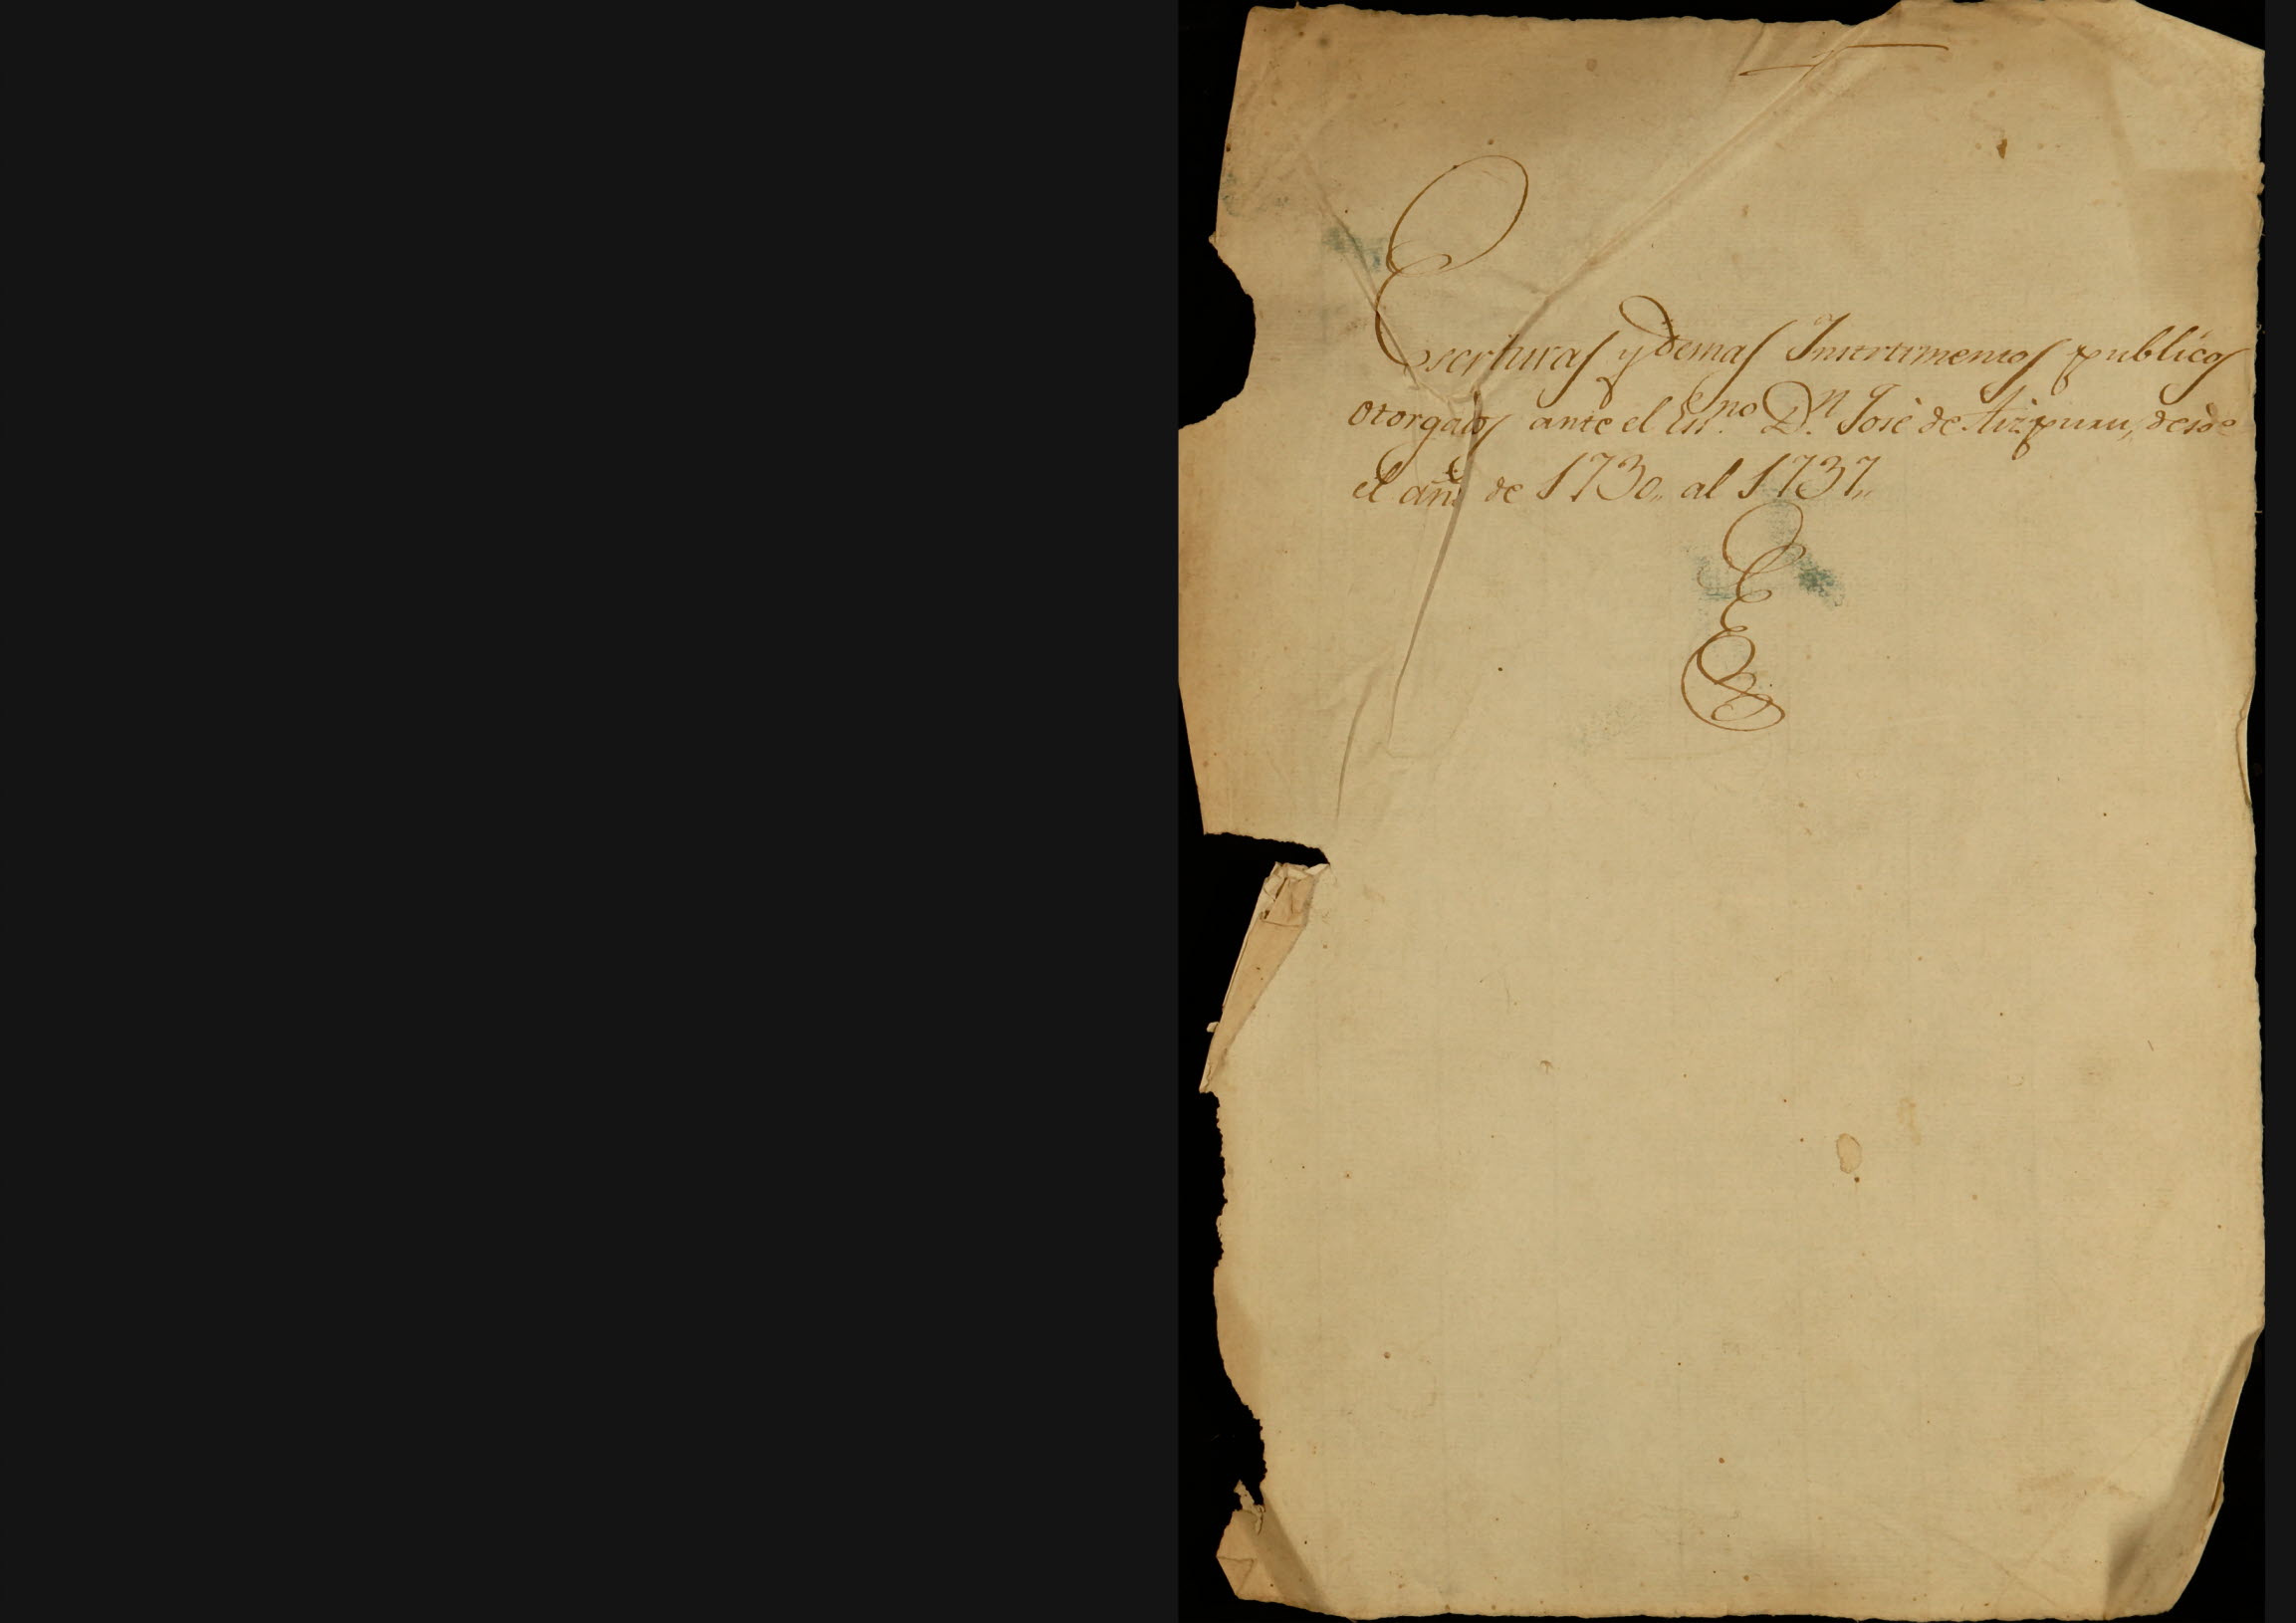 Escrituras y demas Instrumentos publicos
otorgados ante el Es.no D.n José de Aizpuru, desde
el año de 1730,, al 1737,,